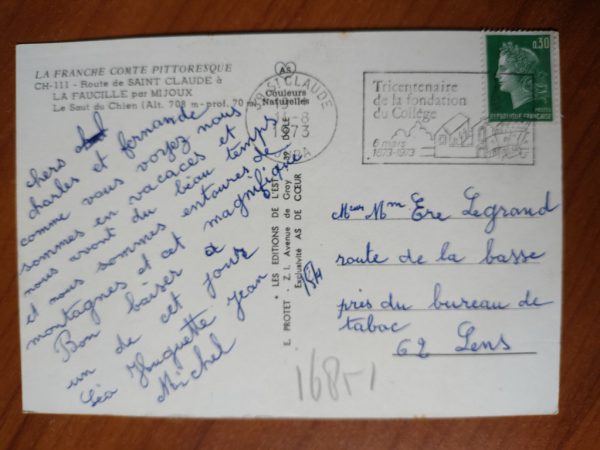 LA FRANCHE COMTE PITTORESQUE
CH-111 - Route de SAINT CLAUDE à
LA FAUCILLE par MIJOUX
Le Saut du Chien (Alt. 708 m - prof. 70 m)
AS
Couleurs
Naturelles
39 ST CLAUDE
1973
JURA
Tricentenaire
de la fondation
du Collège
6 mars
1673-1973
0,30
POSTES
REPUBLIQUE FRANÇAISE
chers
charles et fernande
comme vous voyez nous
sommes en vacaces et
nous avont du beau temps
et nous sommes entourés de
montagnes et cet magnifique
Bon baiser a
un de cet jour
Léa Huguette Jean
Michel
* LES EDITIONS DE L'EST *
E. PROTET - Z.I. Avenue de Gray - 39 DOLE
Exclusivité AS DE CŒUR
Mme Ere Legrand
route de la basse
près du bureau de
tabac
62 Lens
168